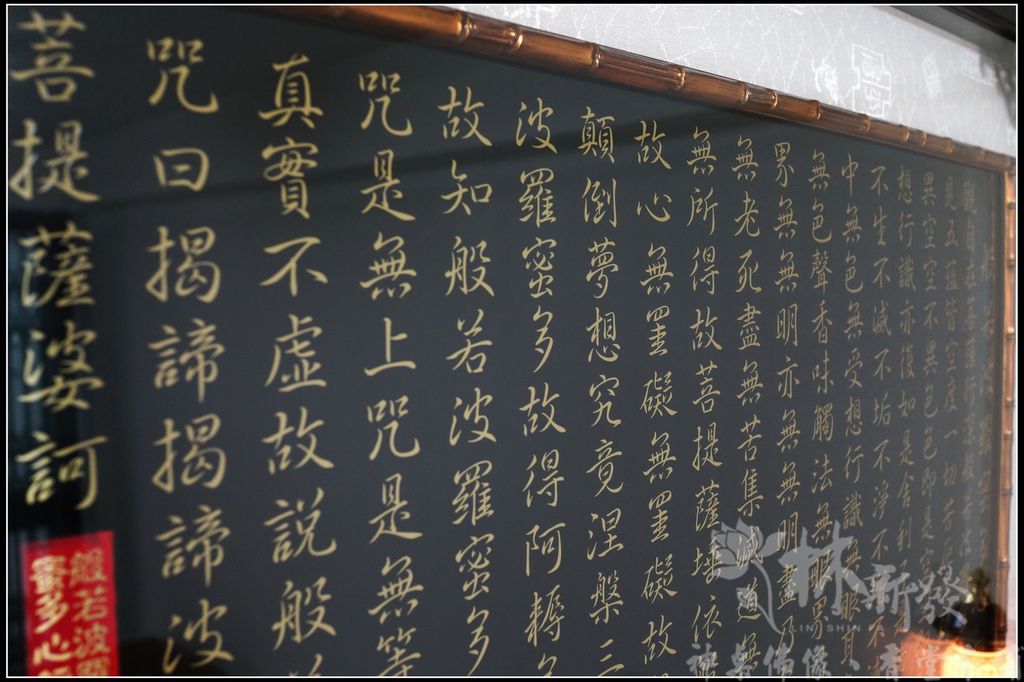 觀自在菩薩行深般若波
見五蘊皆空度一切苦厄
異空空不異色色即是空
想行識亦復如是舍利
不生不滅不垢不淨不
中無色無受想行識無眼耳
無色聲香味觸法無眼界
界無無明亦無無明盡
無老死盡無苦集滅道無
無所得故菩提薩埵依般
故心無罣礙無罣礙故
顛倒夢想究竟涅槃三
波羅蜜多故得阿耨多
故知般若波羅蜜多
咒是無上咒是無等
真實不虛故說般
咒曰揭諦揭諦波
菩提薩婆訶
般若波羅
蜜多心經
林新發
LIN SHIN FA